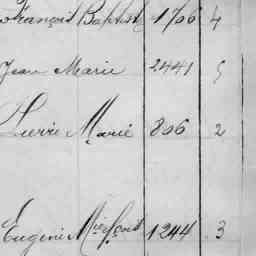 François Baptiste 1706 4
Jean Marie 2441 5
Pierre Marie 806 2
Eugène 1244 3